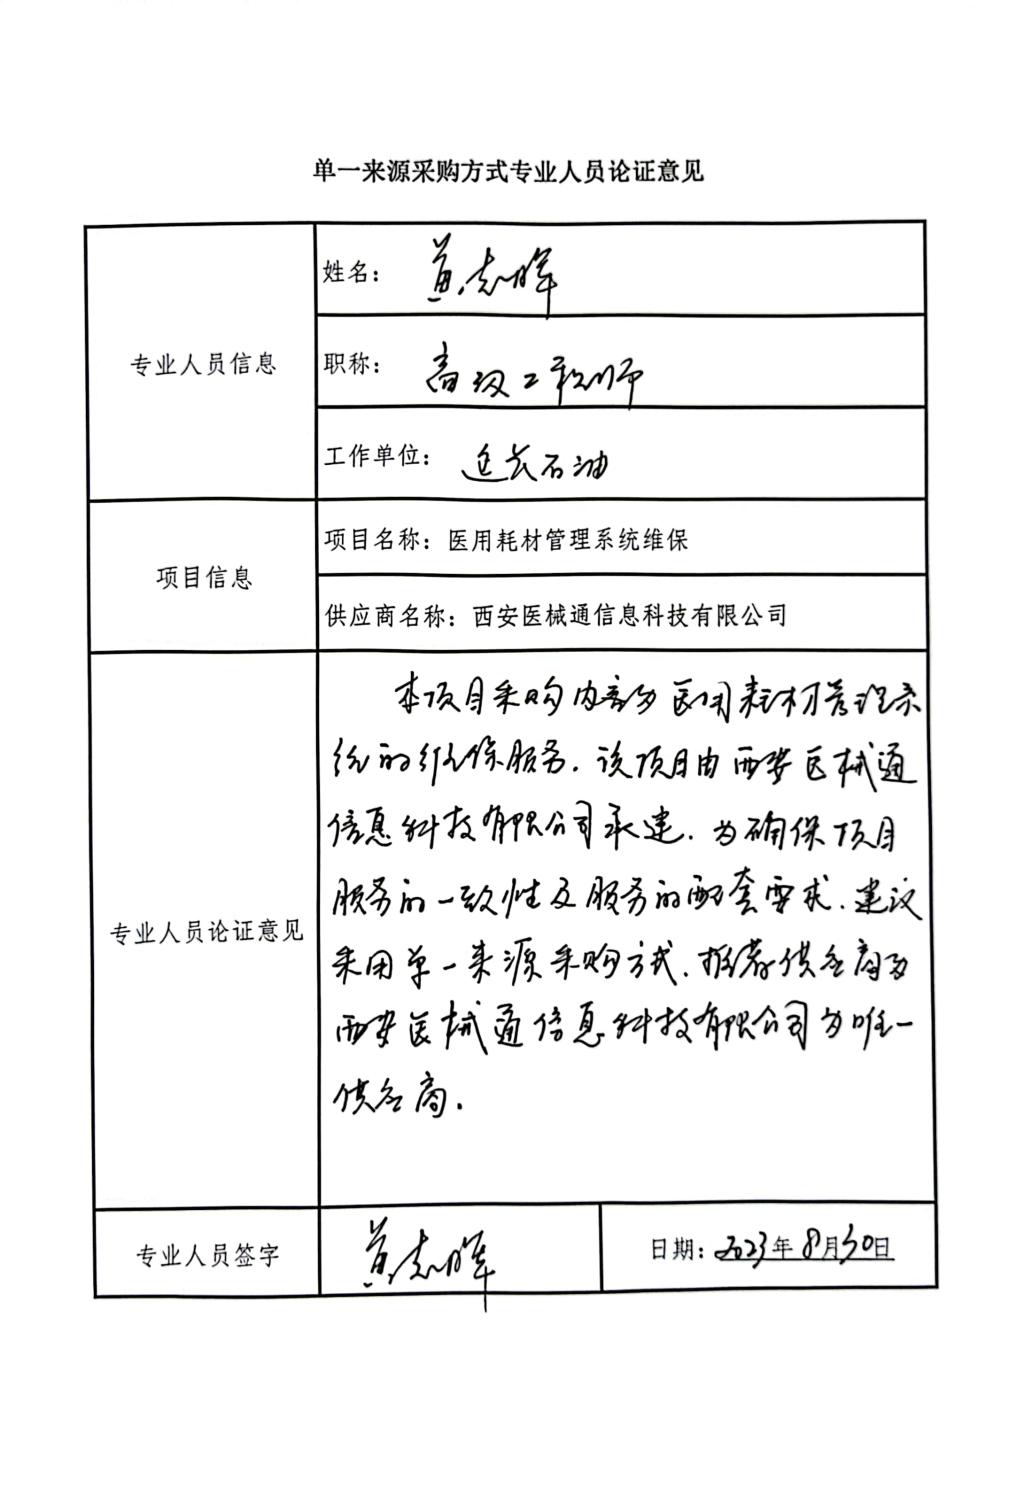 单一来源采购方式专业人员论证意见
专业人员信息
姓名： 黄志晖
职称： 高级工程师
工作单位： 延长石油
项目信息
项目名称：医用耗材管理系统维保
供应商名称：西安医械通信息科技有限公司
专业人员论证意见
本项目采购内容为医用耗材管理系
统的维保服务.该项目由西安医械通
信息科技有限公司承建.为确保项目
服务的一致性及服务的配套要求.建议
采用单一来源采购方式.推荐供应商为
西安医械通信息科技有限公司为唯一
供应商.
专业人员签字
黄志晖
日期：2023年8月30日